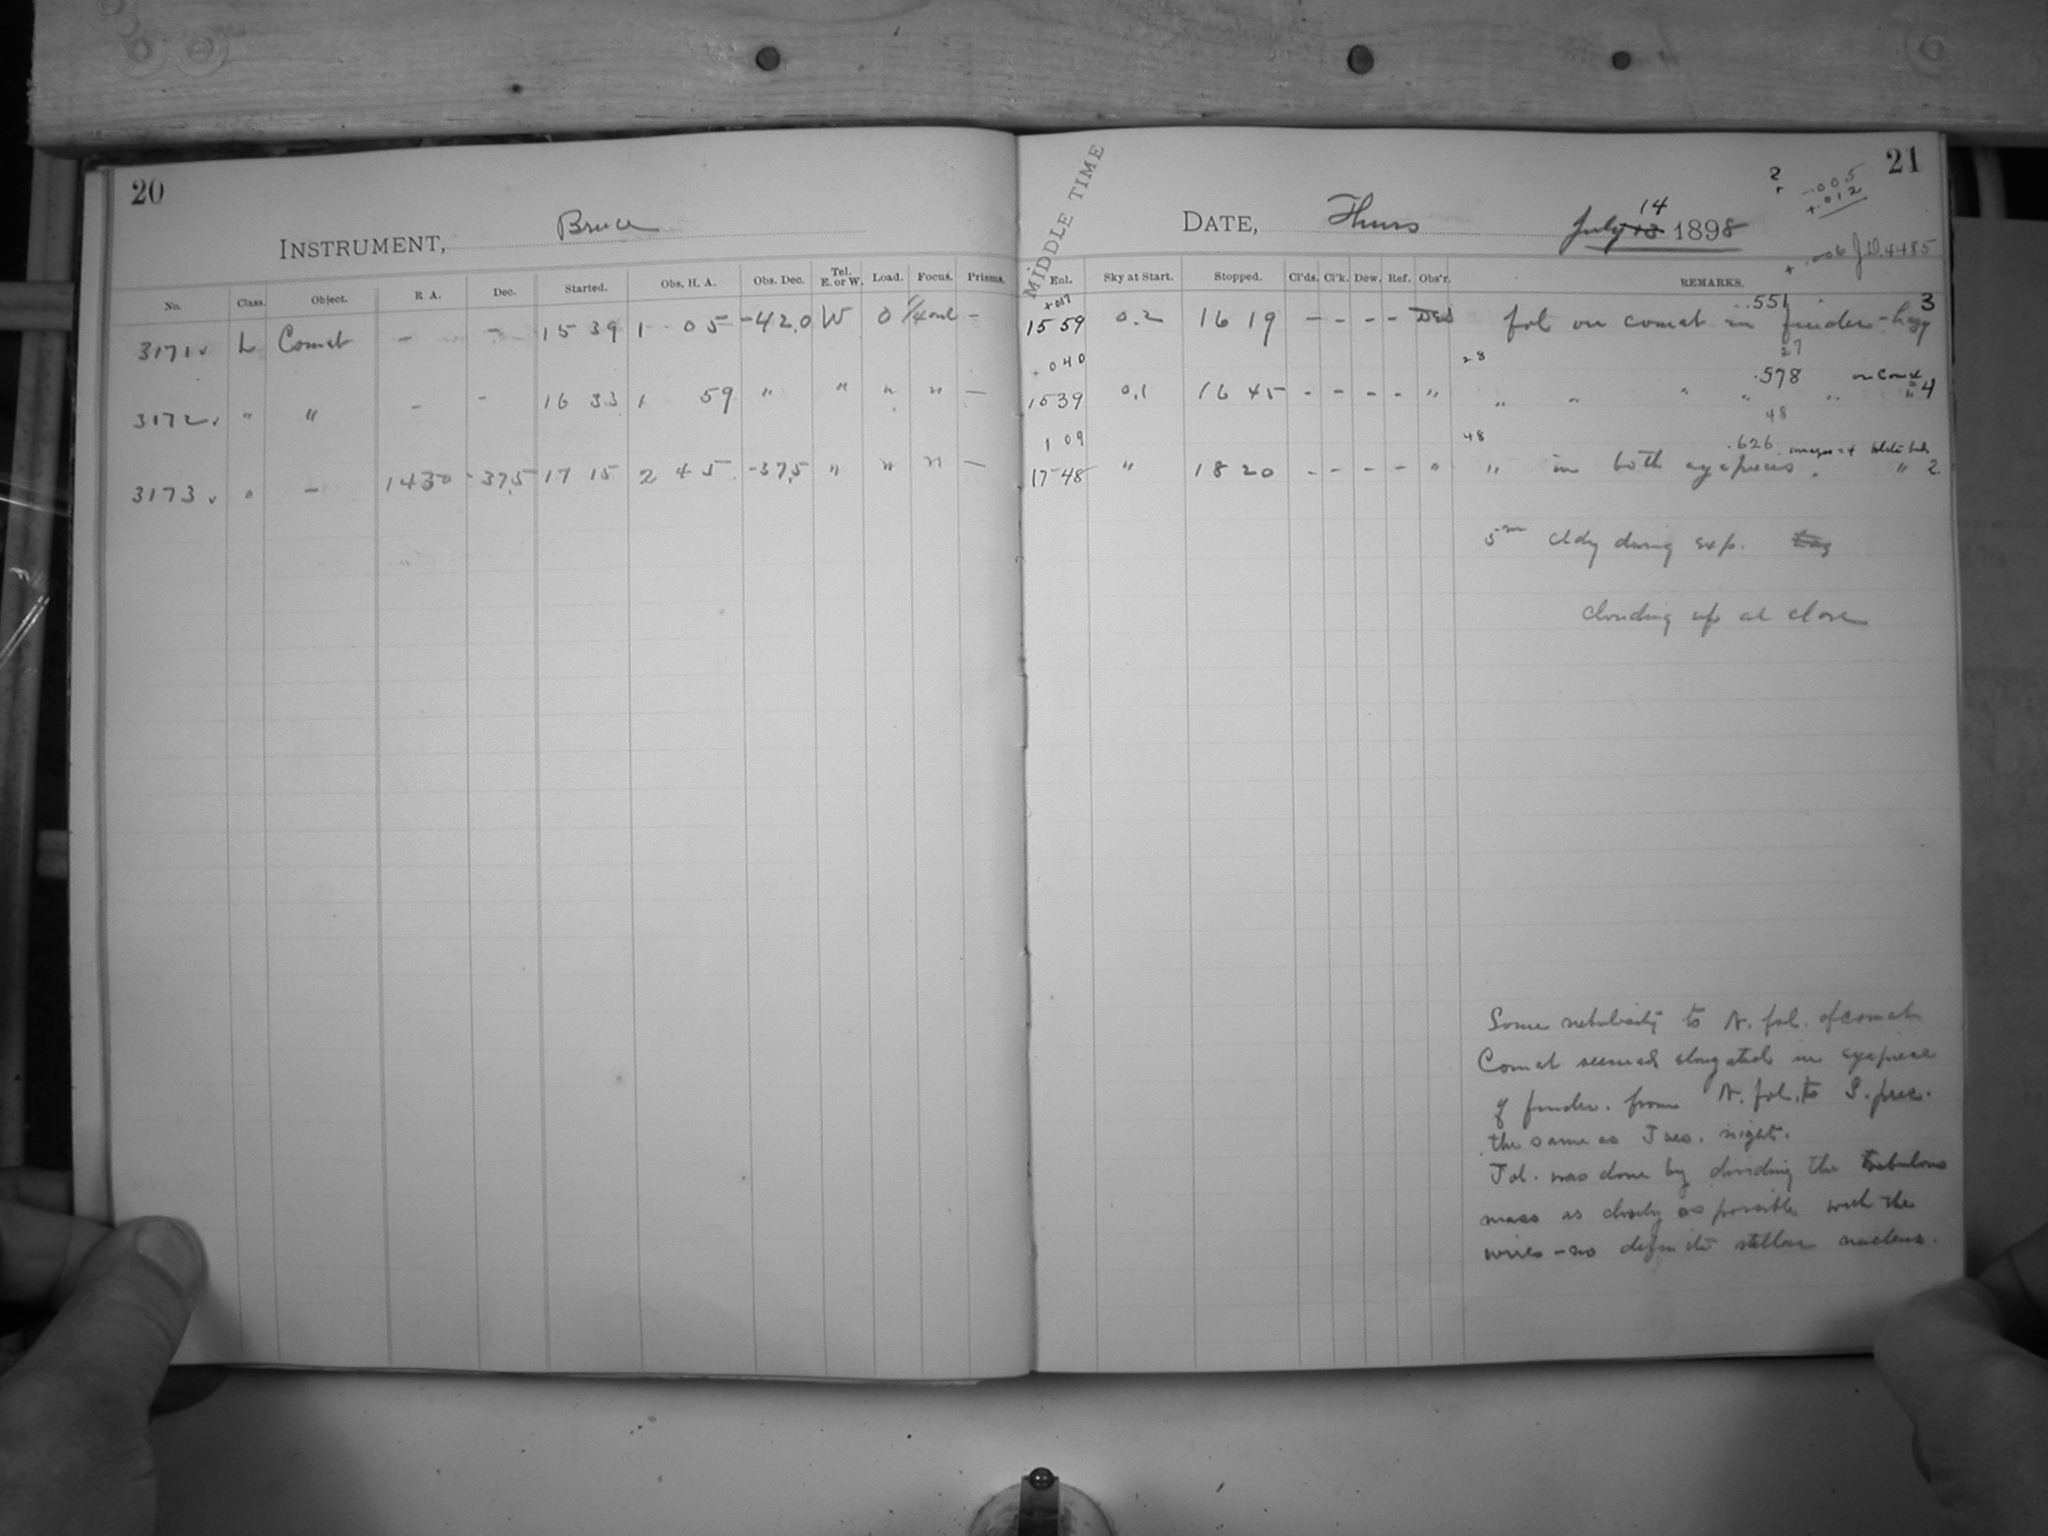 20
INSTRUMENT, Bruce
No. Class. Object. R A. Dec. Started. Obs. H. A. Obs. Dec. Tel. E. or W. Load. Focus. Prisms.
3171 L Comet - - 15 39 1 05 -42.0 W 0 -
3172 " " - - 16 33 1 59 " " " " -
3173 " - 1430 -37.5 17 15 2 45 -37.5 " " " -
21
MIDDLE TIME
DATE, Thurs July 13 14 1898
2
-.005
+.012
+.006 J.D. 4485
Eol. Sky at Start. Stopped. Cl'ds. Cl'k. Dew. Ref. Obs'r. REMARKS.
+017 .551 3
15 59 0.2 16 19 - - - - fol on comet in finder - hazy
040 28 27
.578 on Comet
1539 0.1 16 45 - - - - " " " " " " " 4
48
1 09 48 .626 images = 4
17 48 " 18 20 - - - - " " in both eyepieces. " 2
5m cldy during exp.
clouding up at close
Some nebulosity to N. fol. of comet
Comet seemed elongated in eyepiece
of finder. from N. fol. to S. prec.
the same as Tues. night.
Fol. was done by dividing the nebulous
mass as closely as possible with the
wires - no definite stellar nucleus.